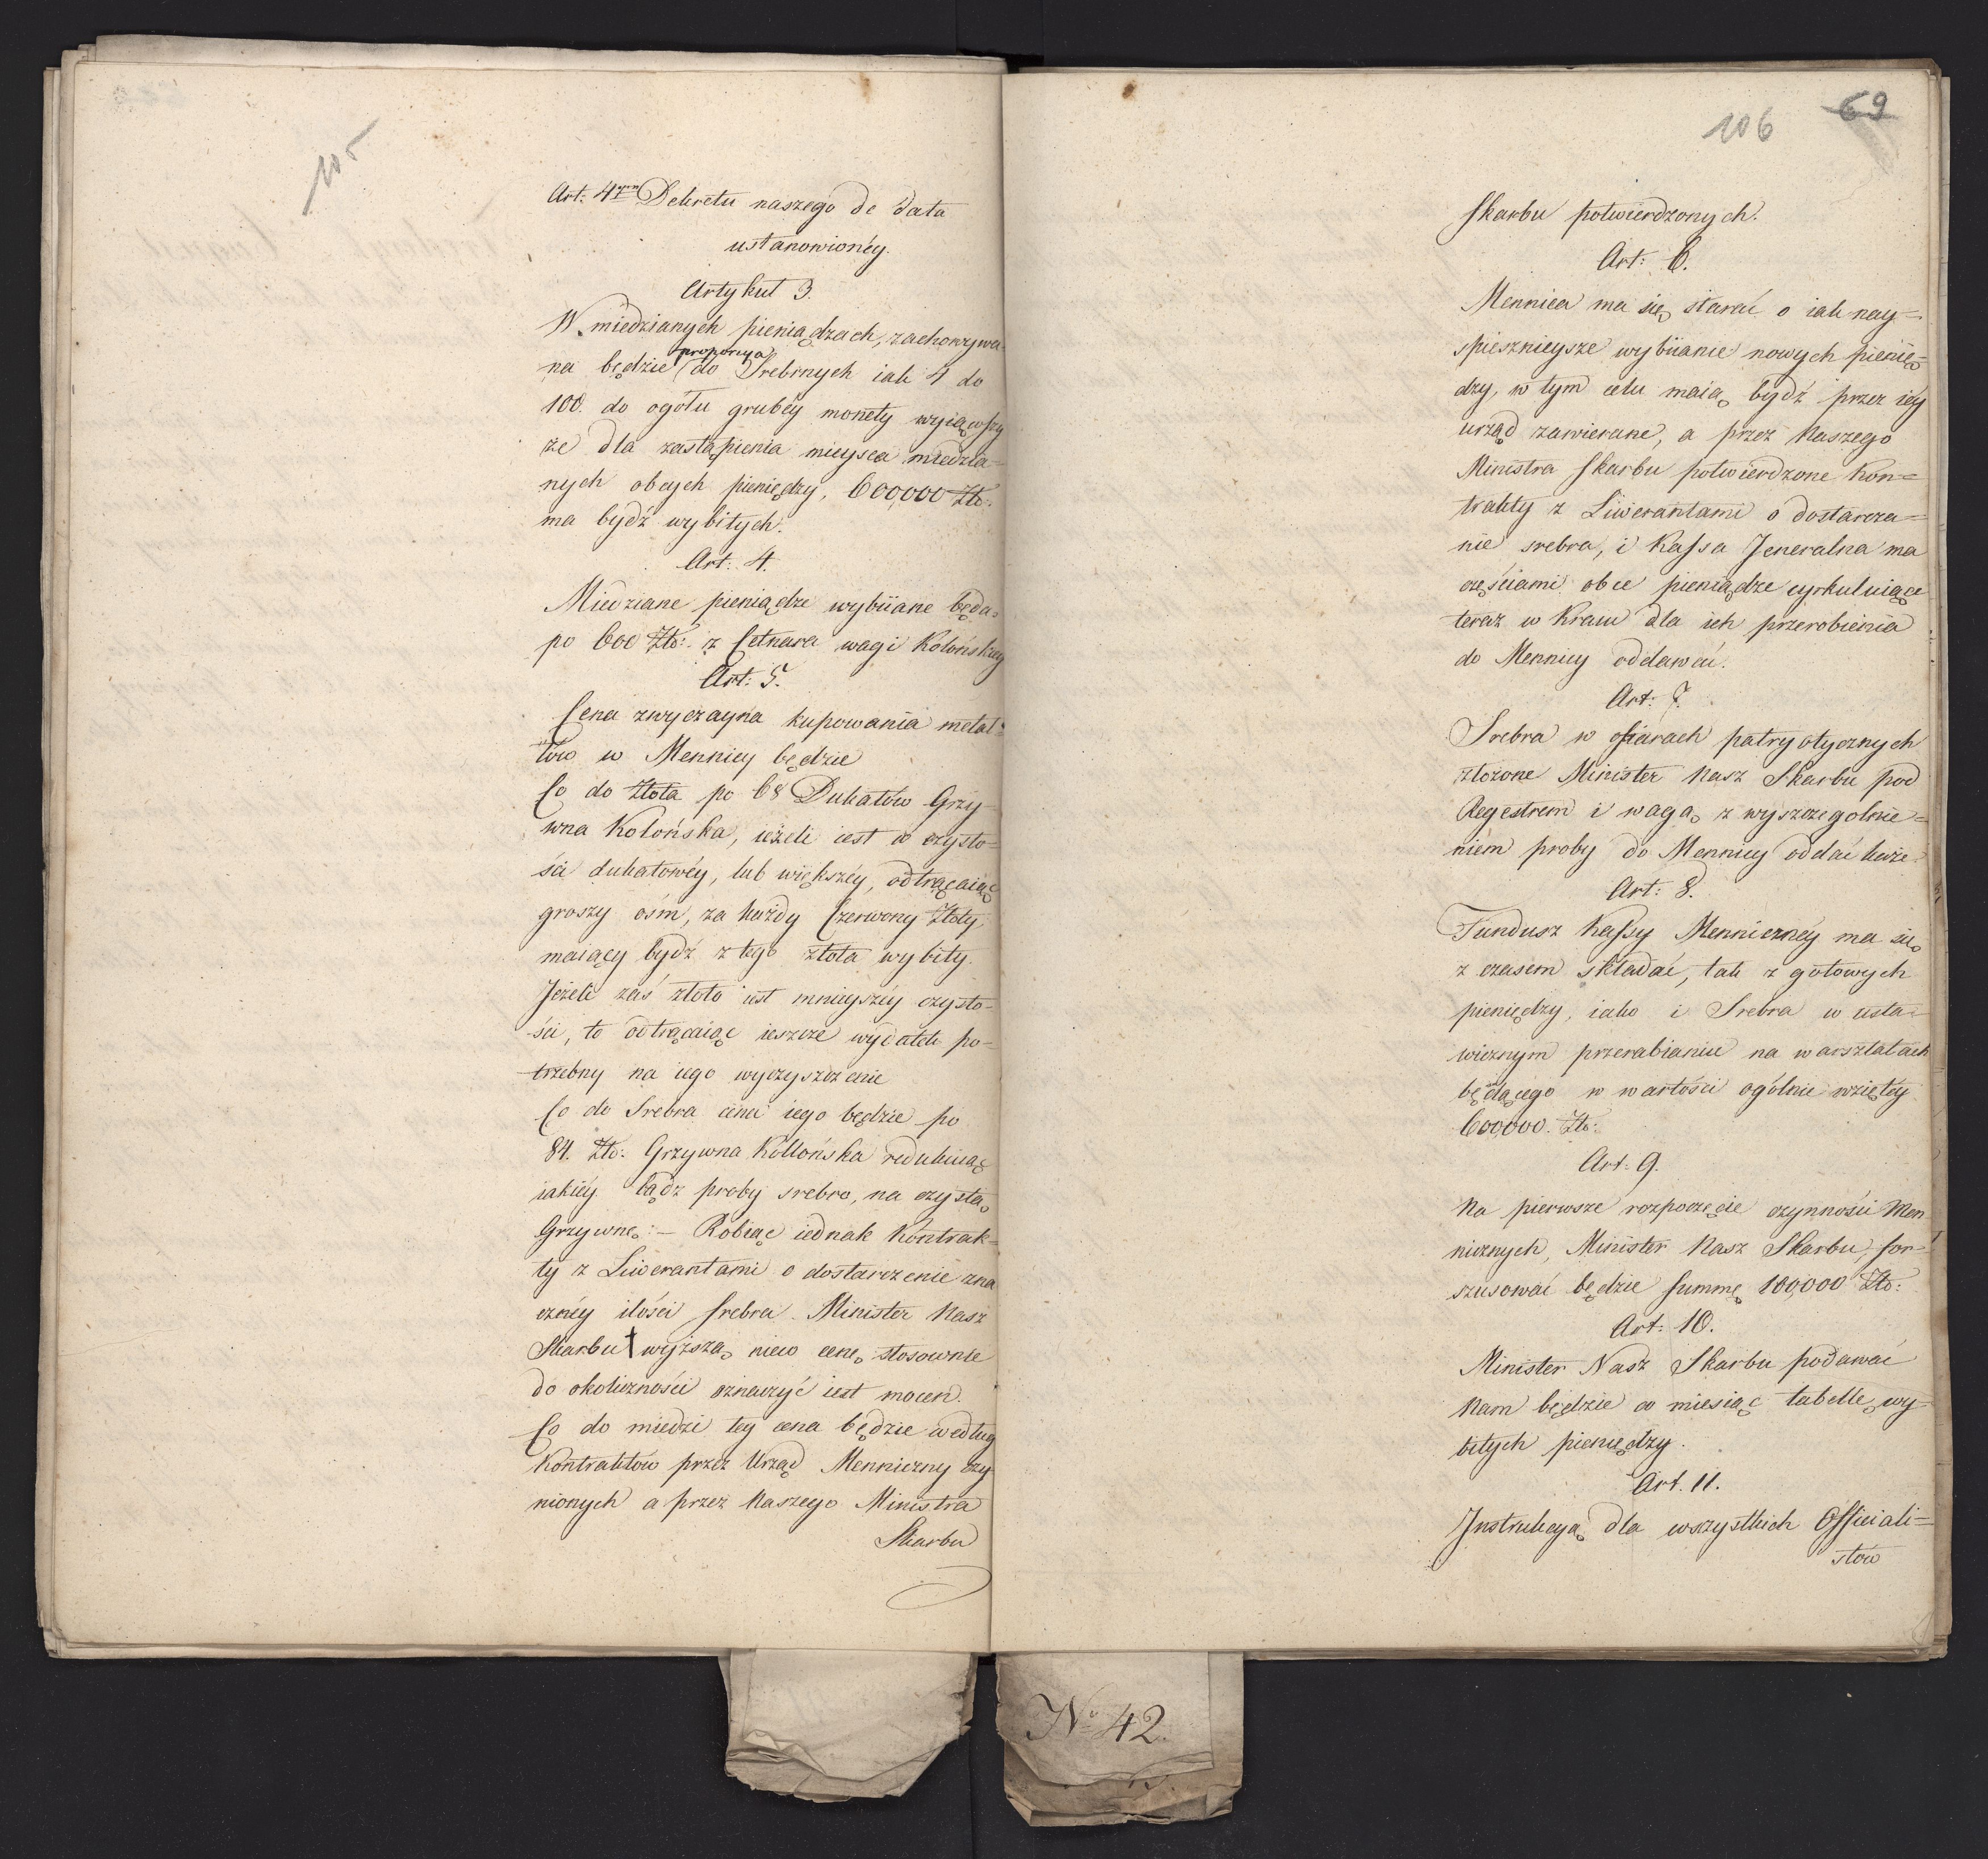 105
Art: 4ym Dekretu naszego de data
ustanowionéy.
Artykuł 3.
W miedzianych pieniądzach, zachowywa-
na będzie proporcya do Srebrnych iak 4 do
100. do ogółu grubéy monety wyiąwszy
że dla zastąpienia mieysca miedzia=
nych obcych pieniędzy, 600,000 Złt:
ma bydź wybitych.
Art: 4.
Miedziane pieniądze wybiiane będą
po 600 Złt: z Cetnara wagi Kolońskiey
Art: 5.
Cena zwyczayna kupowania metal=
łów w Mennicy będzie
Co do Złota po 68 Dukatów Grzy-
wna Kolońska, ieżeli iest w czysto=
ści dukatowéy, lub większéy, odtrącaiąc
groszy ośm, za każdy Czerwony Złoty,
maiący bydź z tego złota wybity.
Jeżeli zaś złoto iest mnieyszéy czysto=
ści, to odtrącaiąc ieszcze wydatek po=
trzebny na iego wyczyszczenie
Co do Srebra cena iego będzie po
84. Złt: Grzywna Kollońska redukuiąc
iakiéy bądz proby srebro, na czystą
Grzywnę:– Robiąc iednak Kontrak=
ty z Liwerantami o dostarczenie zna
cznéy ilości srebra Minister Nasz
Skarbu † wyższą nieco cenę stosownie
do okoliczności oznaczyć iest mocen.
Co do miedzi tey cena będzie według
Kontraktów przez Urząd Menniczny czy
nionych a przez Naszego Ministra
Skarbu
106 69
Skarbu potwierdzonych.
Art: 6.
Mennica ma się starać o iak nay=
spiesznieysze wybiianie nowych pienię=
dzy, w tym celu maią bydź przez iéy
urząd zawierane, a przez Naszego
Ministra Skarbu potwierdzone Kon=
trakty z Liwerantami o dostarcza=
nie srebra, i Kassa Jeneralna ma
częściami obce pieniądze cyrkuluiące
teraz w Kraiu dla ich przerobienia
do Mennicy oddawać.
Art: 7.
Srebra w ofiarach patryotycznych
złożone Minister Nasz Skarbu pod
Regestrem i wagą z wyszczegolnie=
niem proby do Mennicy oddać każe.
Art: 8.
Fundusz Kassy Mennicznéy ma się
z czasem składać, tak z gotowych
pieniędzy, iako i Srebra w usta=
wicznym przerabianiu na warsztatach
będącego w wartości ogólnie wziętéy
600,000. Złt:
Art: 9.
Na pierwsze rozpoczęcie czynności Men
nicznych, Minister Nasz Skarbu, for=
szusować będzie summę 100,000 Złt:
Art: 10.
Minister Nasz Skarbu podawać
Nam będzie co miesiąc tabellę wy-
bitych pieniędzy.
Art. 11.
Instrukcyą dla wszystkich Officiali=
stów
No 42.